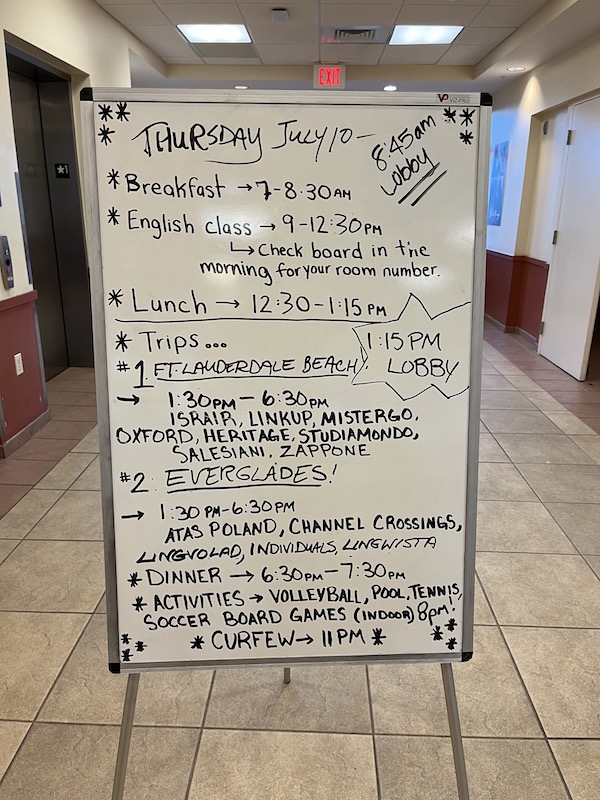 EXIT
VIZ-PRO
THURSDAY JULY 10 –
8:45am
Lobby
* Breakfast → 7-8:30AM
* English class → 9-12:30PM
↳ Check board in the
morning for your room number.
* Lunch → 12:30-1:15 PM
* Trips...
1:15PM
LOBBY
#1 FT. LAUDERDALE BEACH!
→ 1:30PM – 6:30PM
ISRAIR, LINKUP, MISTERGO,
OXFORD, HERITAGE, STUDIAMONDO,
SALESIANI, ZAPPONE
#2 EVERGLADES!
→ 1:30 PM-6:30PM
ATAS POLAND, CHANNEL CROSSINGS,
LINGVOLAD, INDIVIDUALS, LINGWISTA
* DINNER → 6:30PM-7:30PM
* ACTIVITIES → VOLLEYBALL, POOL, TENNIS,
SOCCER BOARD GAMES (INDOOR) 8pm!
* CURFEW → 11PM *